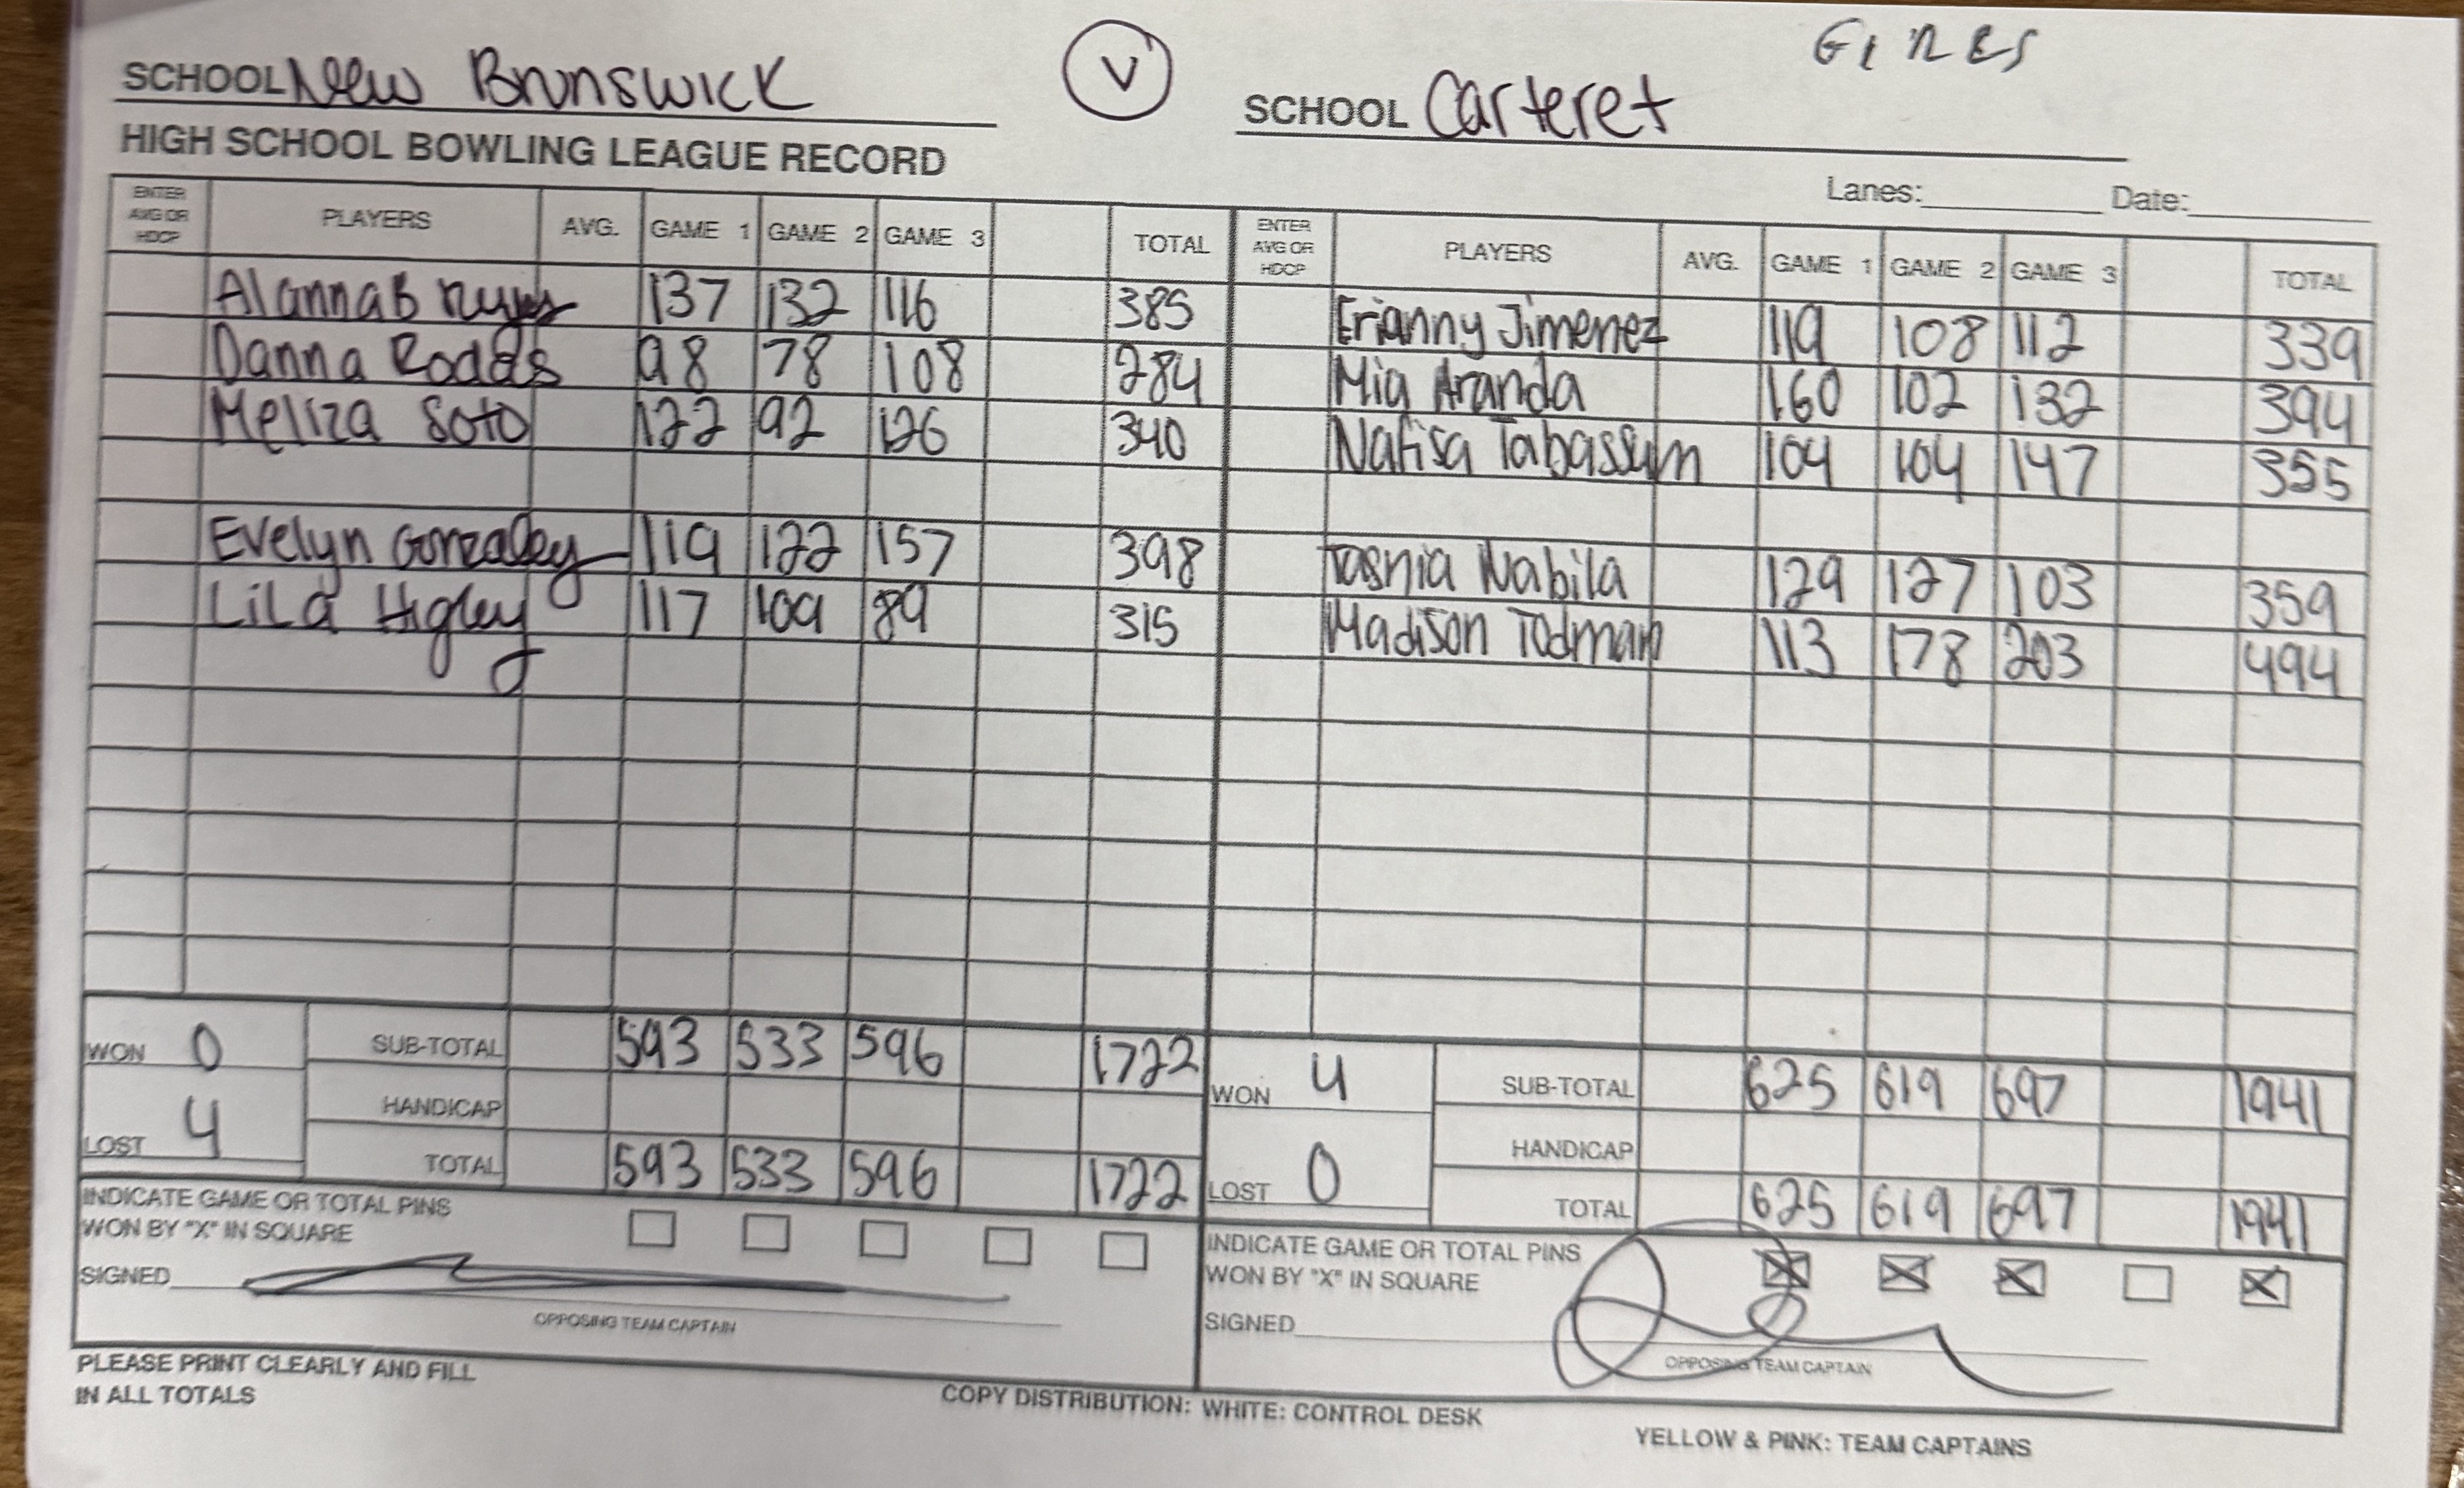 GIRLS
SCHOOL New Brunswick V SCHOOL Carteret
HIGH SCHOOL BOWLING LEAGUE RECORD
Lanes: Date:
ENTER AVG OR HDCP PLAYERS AVG. GAME 1 GAME 2 GAME 3 TOTAL ENTER AVG OR HDCP PLAYERS AVG. GAME 1 GAME 2 GAME 3 TOTAL
AlannaB 137 132 116 385 Erianny Jimenez 119 108 112 339
Danna Rodas 98 78 108 284 Mia Aranda 160 102 132 394
Meliza Soto 122 92 126 340 Nafisa Tabassum 104 104 147 355
Evelyn Gonzalez 119 122 157 398 Tasnia Nabila 129 127 103 359
Lila Higley 117 109 89 315 Madison Todman 113 178 203 494
WON 0 SUB-TOTAL 593 533 596 1722 WON 4 SUB-TOTAL 625 619 697 1941
HANDICAP HANDICAP
LOST 4 TOTAL 593 533 596 1722 LOST 0 TOTAL 625 619 697 1941
INDICATE GAME OR TOTAL PINS INDICATE GAME OR TOTAL PINS
WON BY "X" IN SQUARE WON BY "X" IN SQUARE X X X X
SIGNED SIGNED
OPPOSING TEAM CAPTAIN OPPOSING TEAM CAPTAIN
PLEASE PRINT CLEARLY AND FILL
IN ALL TOTALS
COPY DISTRIBUTION: WHITE: CONTROL DESK
YELLOW & PINK: TEAM CAPTAINS